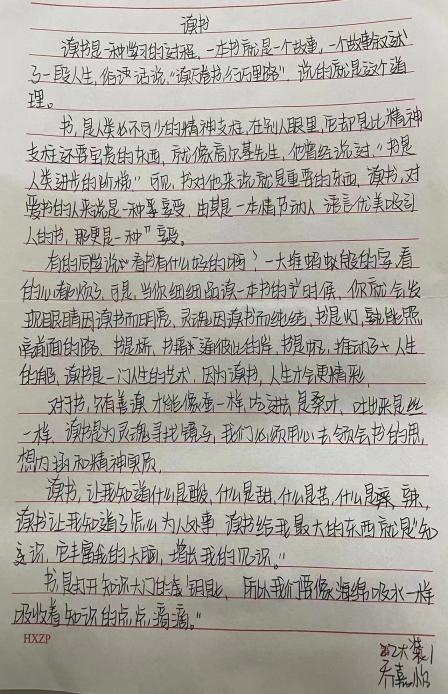 读书
读书是一种学习的过程，一本书就是一个故事，一个故事叙述
了一段人生，俗话说，"读万卷书行万里路"，说的就是这个道
理。
书，是人类必不可少的精神支柱，在别人眼里，它却是比精神
支柱还要宝贵的东西，就像高尔基先生，他曾经说过，"书是
人类进步的阶梯"可见，书对他来说就是重要的东西，读书，对
爱书的人来说是一种享受，由其是一本情节动人 语言优美吸引
人的书，那更是一种"享受。
有的同学说：看书有什么好的啊？一大堆蚂蚁般的字，看
的心都烦了，可是，当你细细品读一本书的时候，你就会发
现眼睛因读书而明亮，灵魂因读书而纯结，书是灯，能照
亮前面的路，书是桥，书接通彼此的岸，书是帆，推动了人生
的船，读书是一门人生的艺术，因为读书，人生才会更精彩，
对书，只有善读才能像蚕一样，吃进去是桑叶，吐出来是丝
一样，读书是为灵魂寻找镜子，我们必须用心去领会书的思，
想内涵和精神实质，
读书，让我知道什么是酸，什么是甜，什么是苦，什么是辣，
读书让我知道了怎么为人处事，读书给我最大的东西就是"知
识，它丰富我的大脑，增长我的见识。"
书是打开知识大门的金钥匙，所以我们要像海绵吸水一样
吸收着知识的点点滴滴。"
HXZP